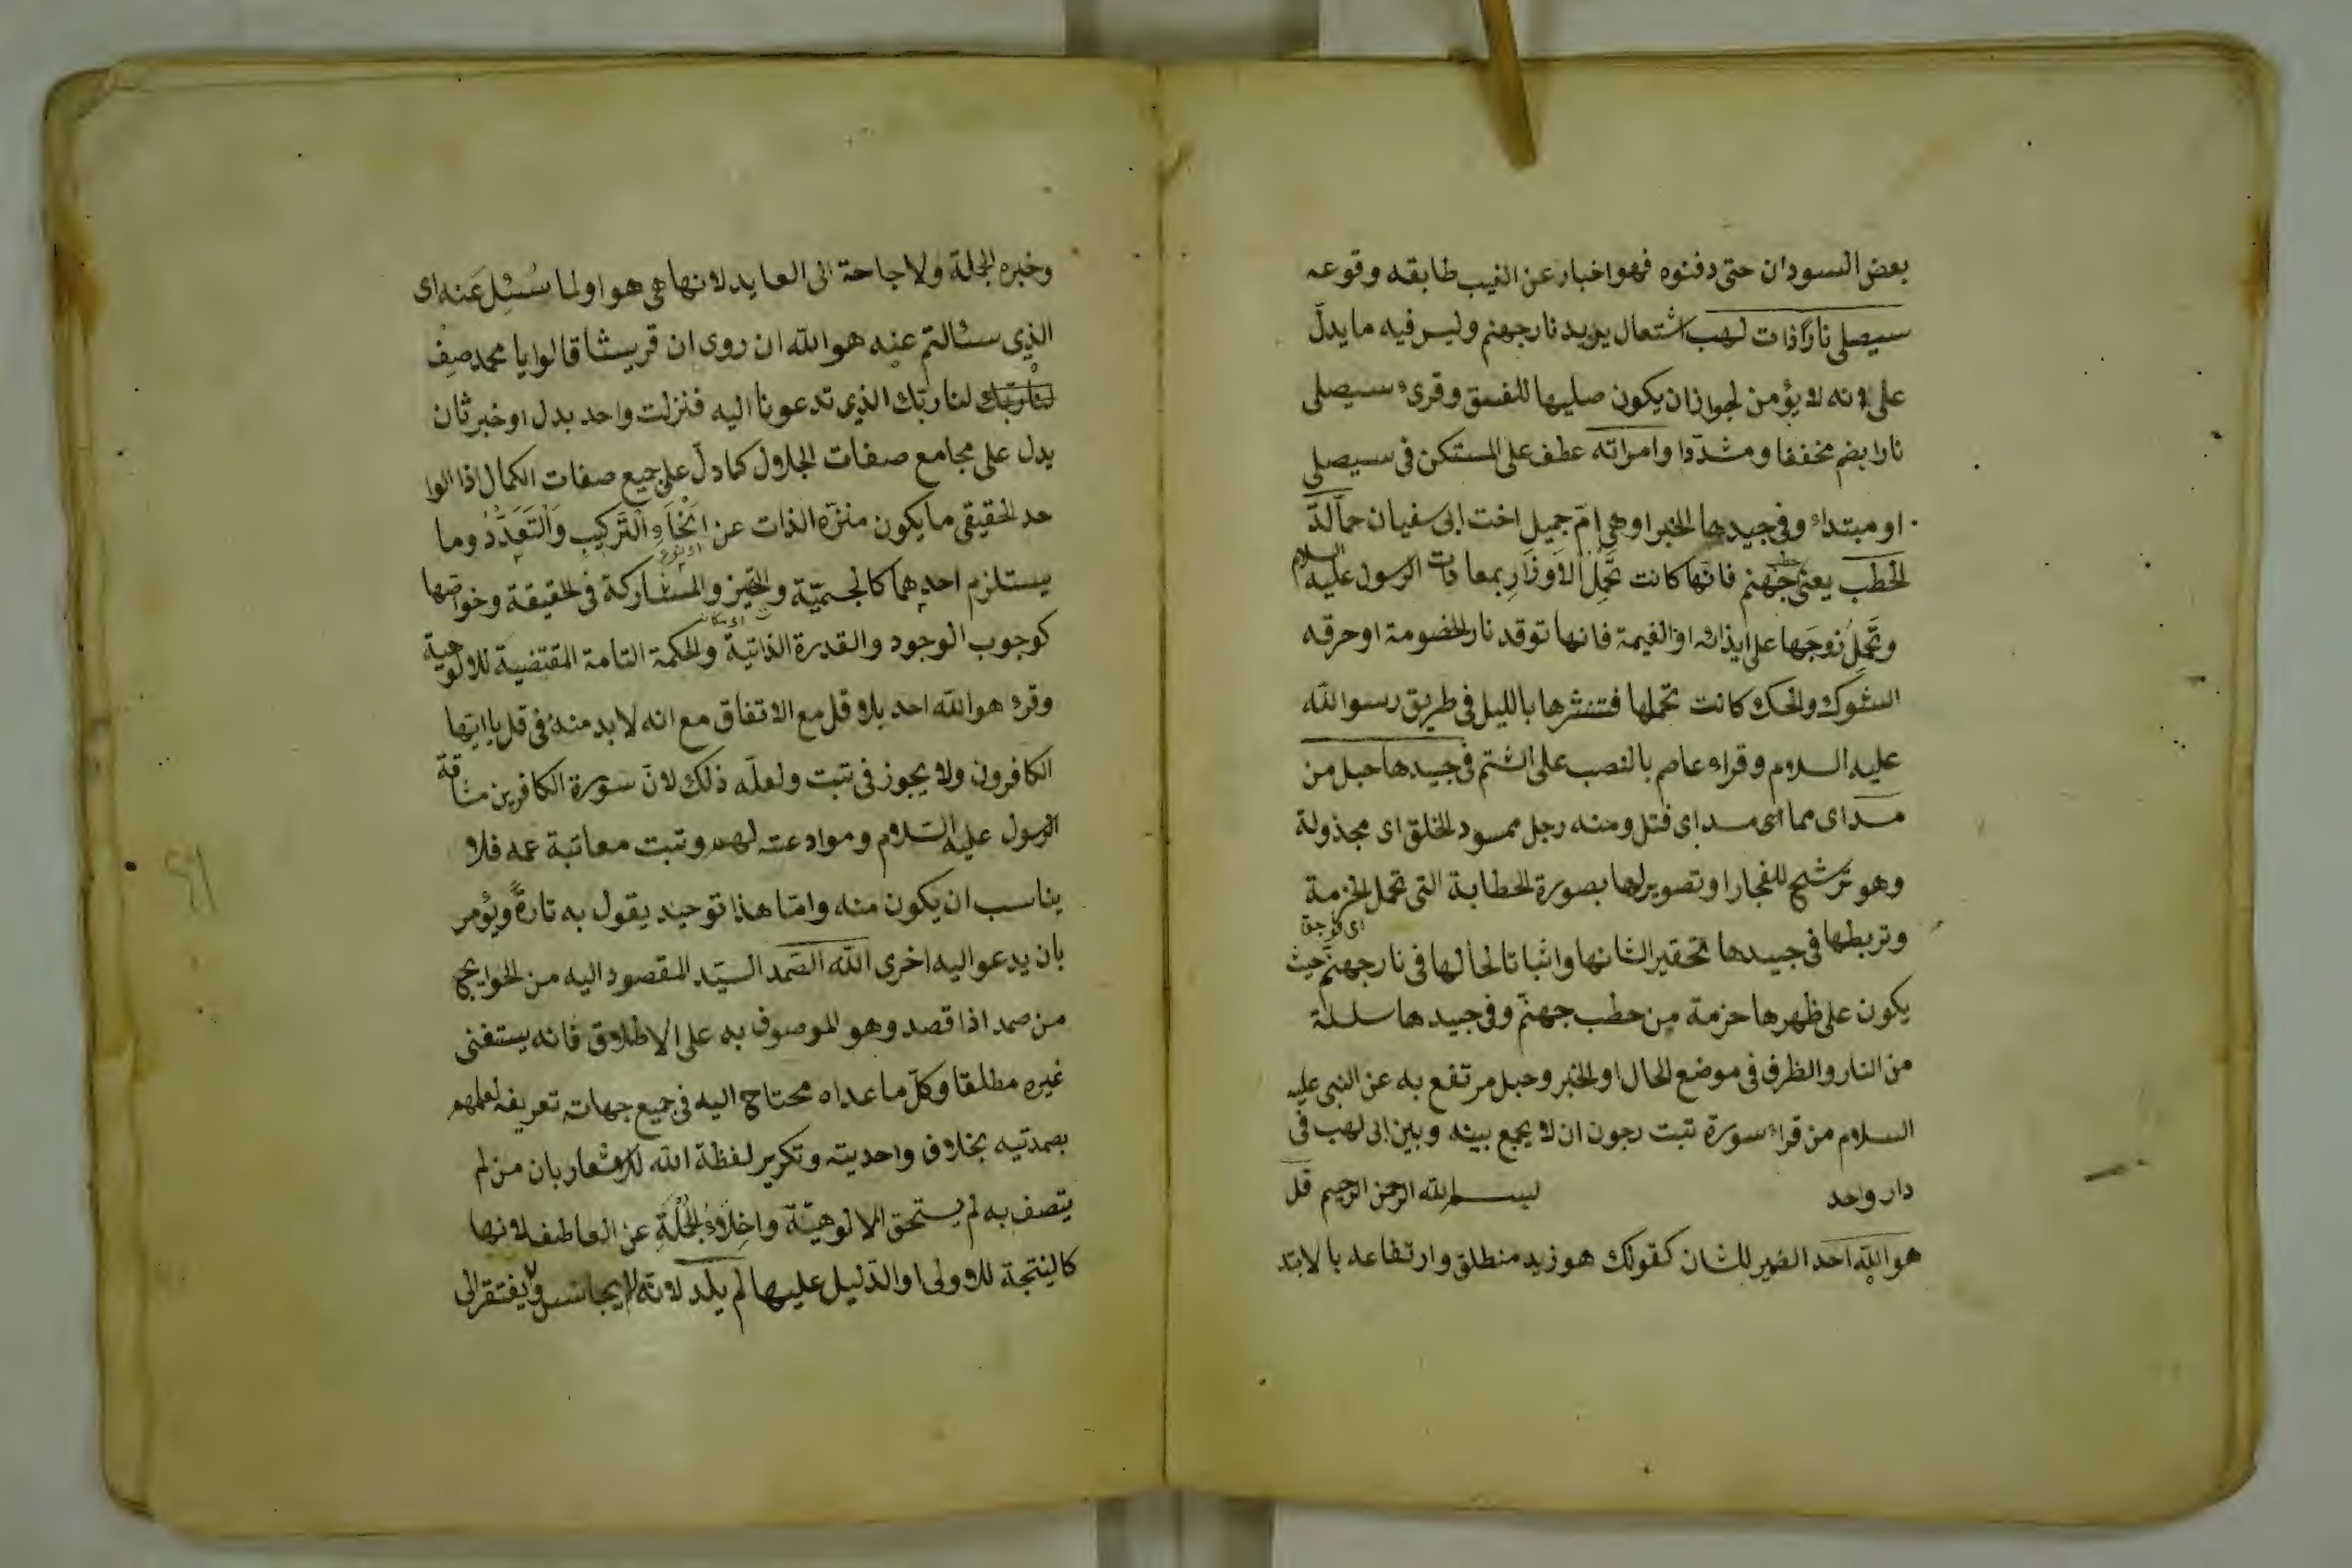 بعض السودان حتى دفنوه فهو اخبار عن الغيب طابقه وقوعه
سيصلى نارًا ذات لهب اشتعال يريد نار جهنم وليس فيه ما يدلّ
على انه لا يؤمن لجواز ان يكون صليها للفسق وقرئ سيصلى
نارا بضم مخففا ومشدّدا وامراته عطف على المستكن فى سيصلى
او مبتداء وفى جيدها الخبر او هى امّ جميل اخت ابى سفيان حمالة
الحطب يعنى حطب جهنم فانها كانت تحمل الاوزار بمعادات الرسول عليه السلام
وتحمل زوجها على ايذائه او النميمة فانها توقد نار الخصومة او حزقه
الشوك والحسك كانت تحملها فتنثرها بالليل فى طريق رسو الله
عليه السلام وقراء عاصم بالنصب على الشتم فى جيدها حبل من
مسد اى مما اى مسد اى فتل ومنه رجل ممسود الخلق اى مجذولة
وهو ترشيح للمجاز او تصويرلها بصورة الحطابة التى تحمل الحزمة
وتربطها فى جيدها تحقيرا لشانها واثباتا لحالها فى نار جهنم حيث
يكون على ظهرها حزمة من حطب جهنّم وفى جيدها سلسلة
من النار والظرف فى موضع الحال او الخبر وحبل مرتفع به عن النبى عليه
السلام من قراء سورة تبت رجون ان لا يجمع بينه وبين ابى لهب فى
دار واحد بسم الله الرحمن الرحيم قل
هو الله احد الضمير للشان كقولك هو زيد منطلق وارتفاعه بالابتد
وخبره الجملة ولاحاجة الى العايد لانها هى هو او لما سُئِل عَنه اى
الذى سئالتم عنه هو الله ان روى ان قريشا قالوا يا محمد صِفْ
لنا ربّك الذى تدعونا اليه فنزلت واحد بدل او خبر ثان
يدل على مجامع صفات الجلال كما دلّ على جميع صفات الكمال اذا الوا
حد الحقيقى ما يكون منزّه الذات عن انحاء التركيب والتعدّد وما
يستلزم احدهما كالجسميّة والتحيز والمشاركة فى الحقيقة وخواصّها
كوجوب الوجود والقدرة الذاتية والحكمة التامة المقتضية للالوهية
وقرء هو الله احد بلا قل مع الاتفاق مع انه لا بد منه فى قل يا ايّها
الكافرون ولا يجوز فى تبت ولعلّه ذلك لانّ سورة الكافرين مشاقة
الرسول عليه السّلام وموادعته لهم وتبت معاتبة عمه فلا
يناسب ان يكون منه وامّا هذا توحيد يقول به تارةً ويؤمر
بان يدعو اليه اخرى الله الصّمد السيّد المقصود اليه من الحوايج
من صمد اذا قصد وهو الموصوف به على الاطلاق فانه يستغنى
غيره مطلقا وكلّ ما عداه محتاج اليه فى جميع جهاته تعريفه لعلمهم
بصمدتيه بخلاف واحديته وتكرير لفظة الله للاشعار بان من لم
يتصف به لم يستحق الالوهيّة واخلاء الجملة عن العاطف لانها
كالنتيجة للاولى او الدّليل عليها لم يلد لانّه لا يجانس ولا يفتقر الى